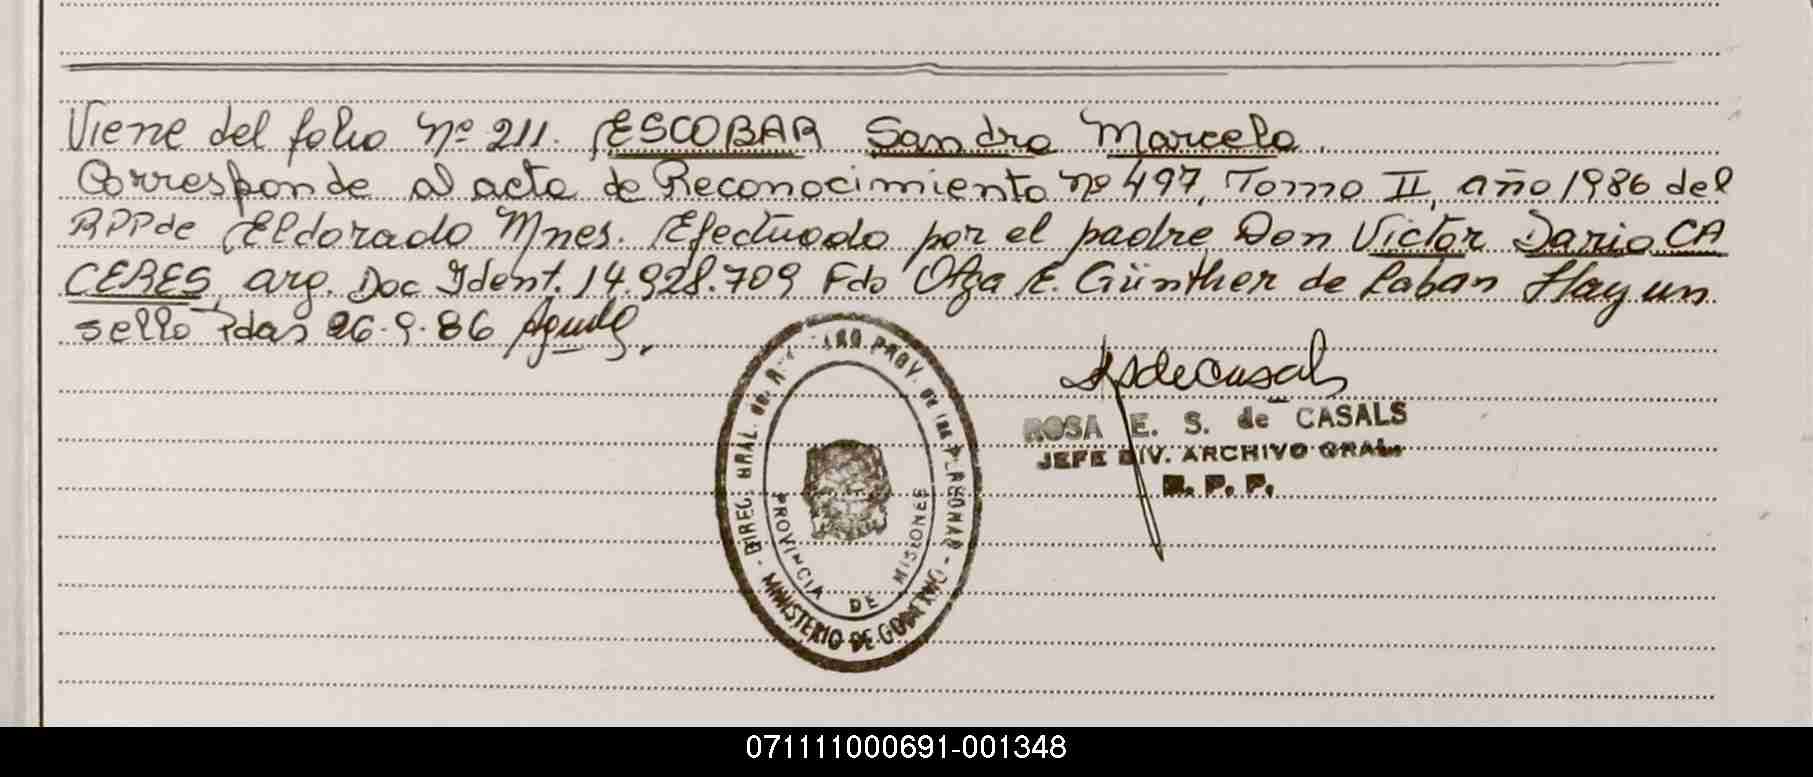 Viene del folio Nº 211. ESCOBAR Sandro Marcelo.
Corresponde al acta de Reconocimiento Nº 497, Tomo II, año 1986 del
RPP de Eldorado Mnes. Efectuado por el padre Don Victor Dario CA
CERES, arg. Doc Ident. 14.928.709 Fdo Olga E. Günther de Laban Hay un
sello Pdas 26.9.86
DIREC. GRAL. de PROV. de las PERSONAS - MINISTERIO DE GOBIERNO -
PROVINCIA DE MISIONES
ROSA E. S. de CASALS
JEFE DIV. ARCHIVO GRAL.
R. P. P.
071111000691-001348